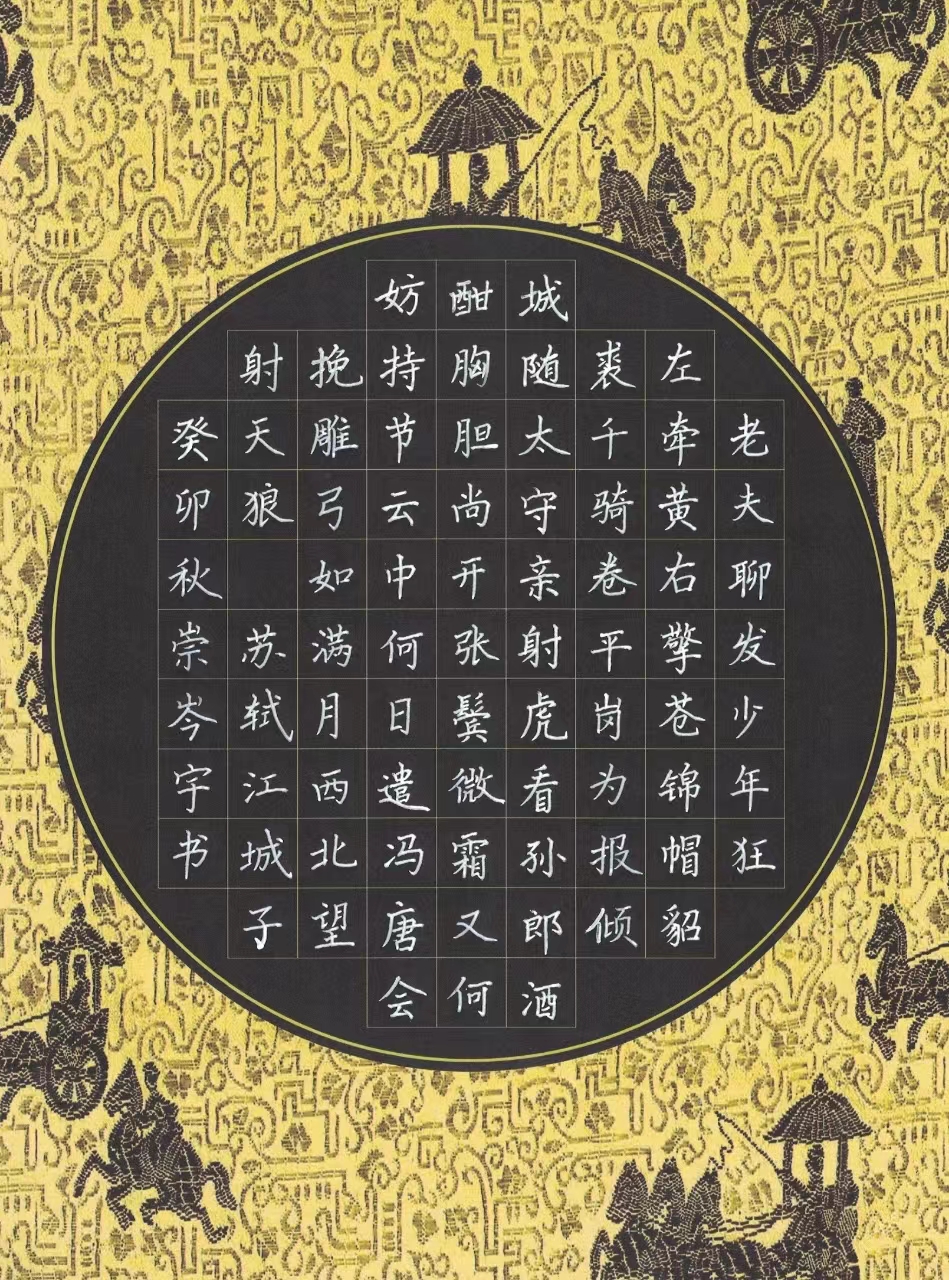 老夫聊发少年狂
左牵黄右擎苍锦帽貂
裘千骑卷平岗为报倾
城随太守亲射虎看孙郎酒
酣胸胆尚开张鬓微霜又何
妨持节云中何日遣冯唐会
挽雕弓如满月西北望
射天狼 苏轼江城子
癸卯秋崇岑宇书